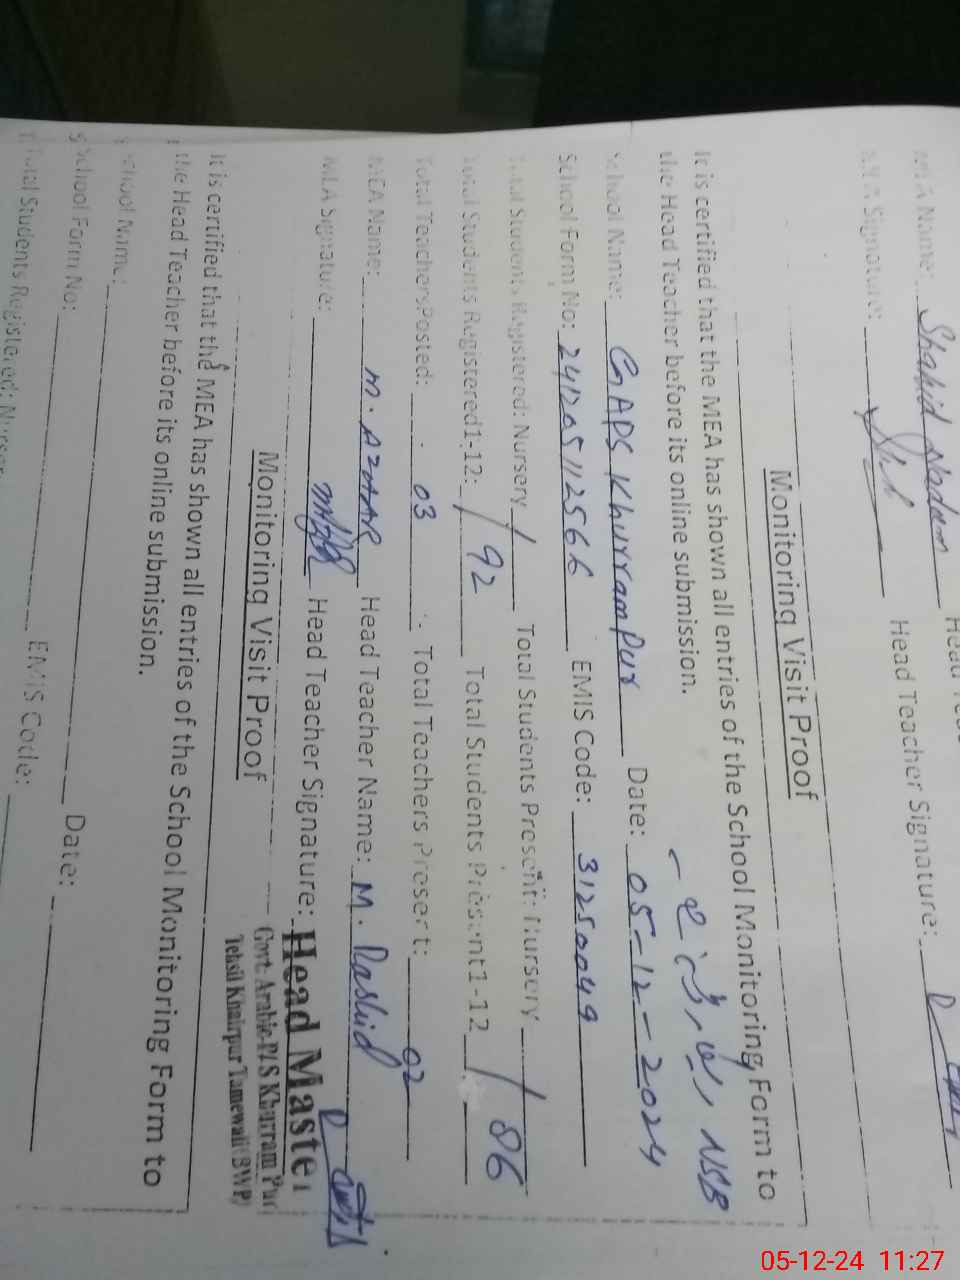 MEA Name: Shahid Nadeem Head
MEA Signature: Head Teacher Signature:
Monitoring Visit Proof
It is certified that the MEA has shown all entries of the School Monitoring Form to
the Head Teacher before its online submission. NSB
School Name: GAPS Khurrampur Date: 05-12-2024
School Form No: 241205112566 EMIS Code: 31250049
Total Students Registered: Nursery / Total Students Present: Nursery /
Total Students Registered1-12: / 92 Total Students Present1-12 / 86
Total Teachers Posted: 03 Total Teachers Present: 02
MEA Name: M. AZHAR Head Teacher Name: M. Rashid
MEA Signature: Head Teacher Signature: Head Master
Govt: Arabic P/S Khurram Pur
Tehsil Khairpur Tamewali (BWP)
Monitoring Visit Proof
It is certified that the MEA has shown all entries of the School Monitoring Form to
the Head Teacher before its online submission.
School Name: Date:
School Form No: EMIS Code:
Total Students Registered:
05-12-24 11:27